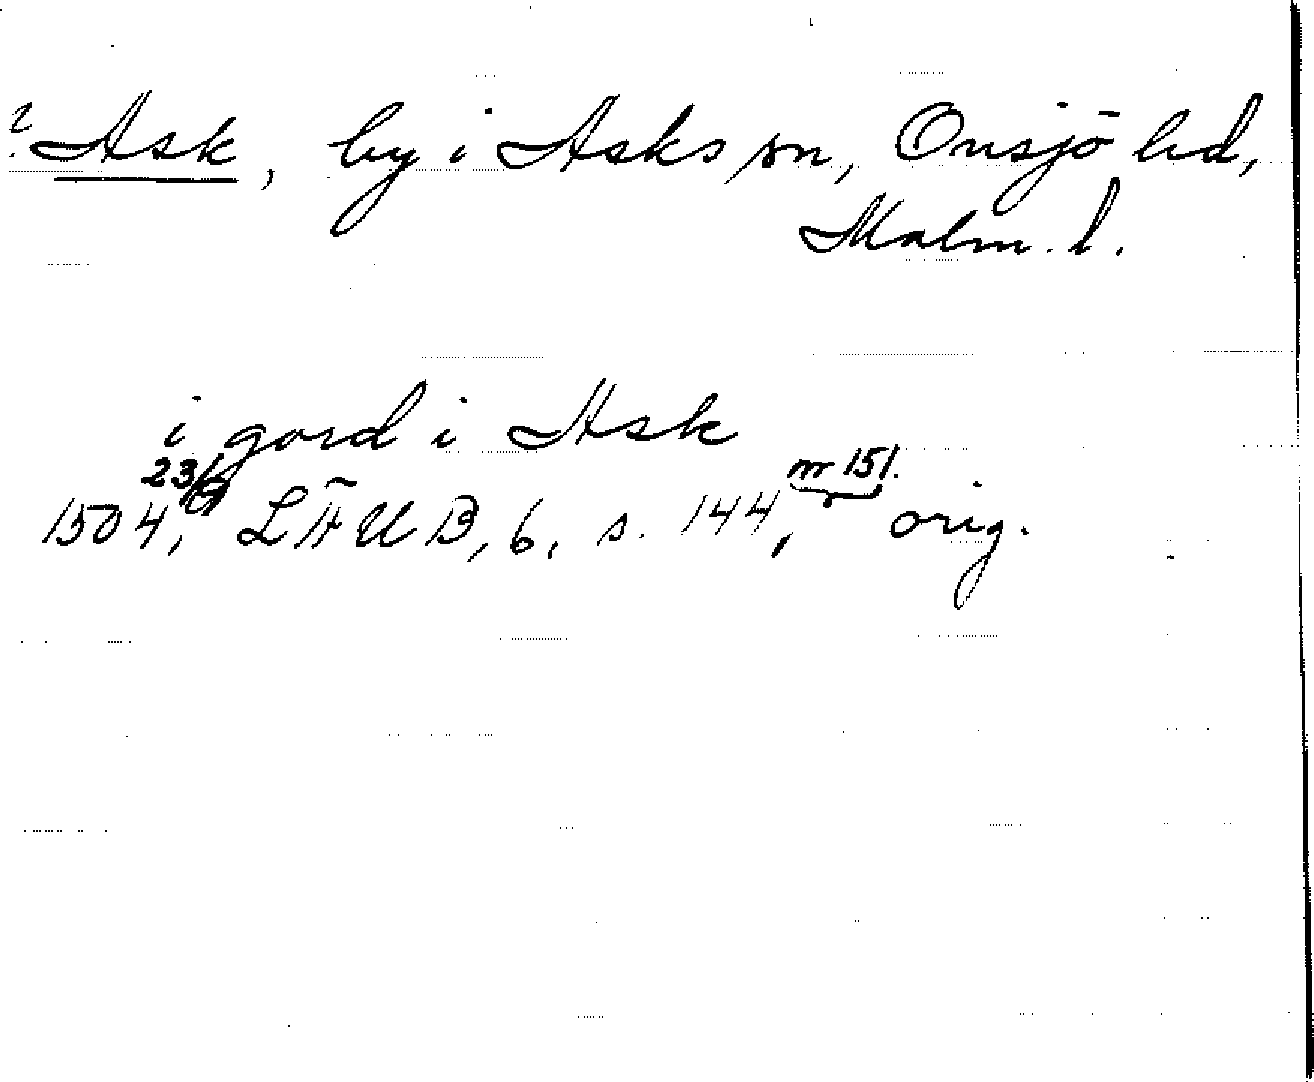 ? Ask, by i Asks sn, Onsjö hd,
Malm. l.
i gord i Ask
1504 23/6, LÄUB, 6, s. 144, nr 151. orig.